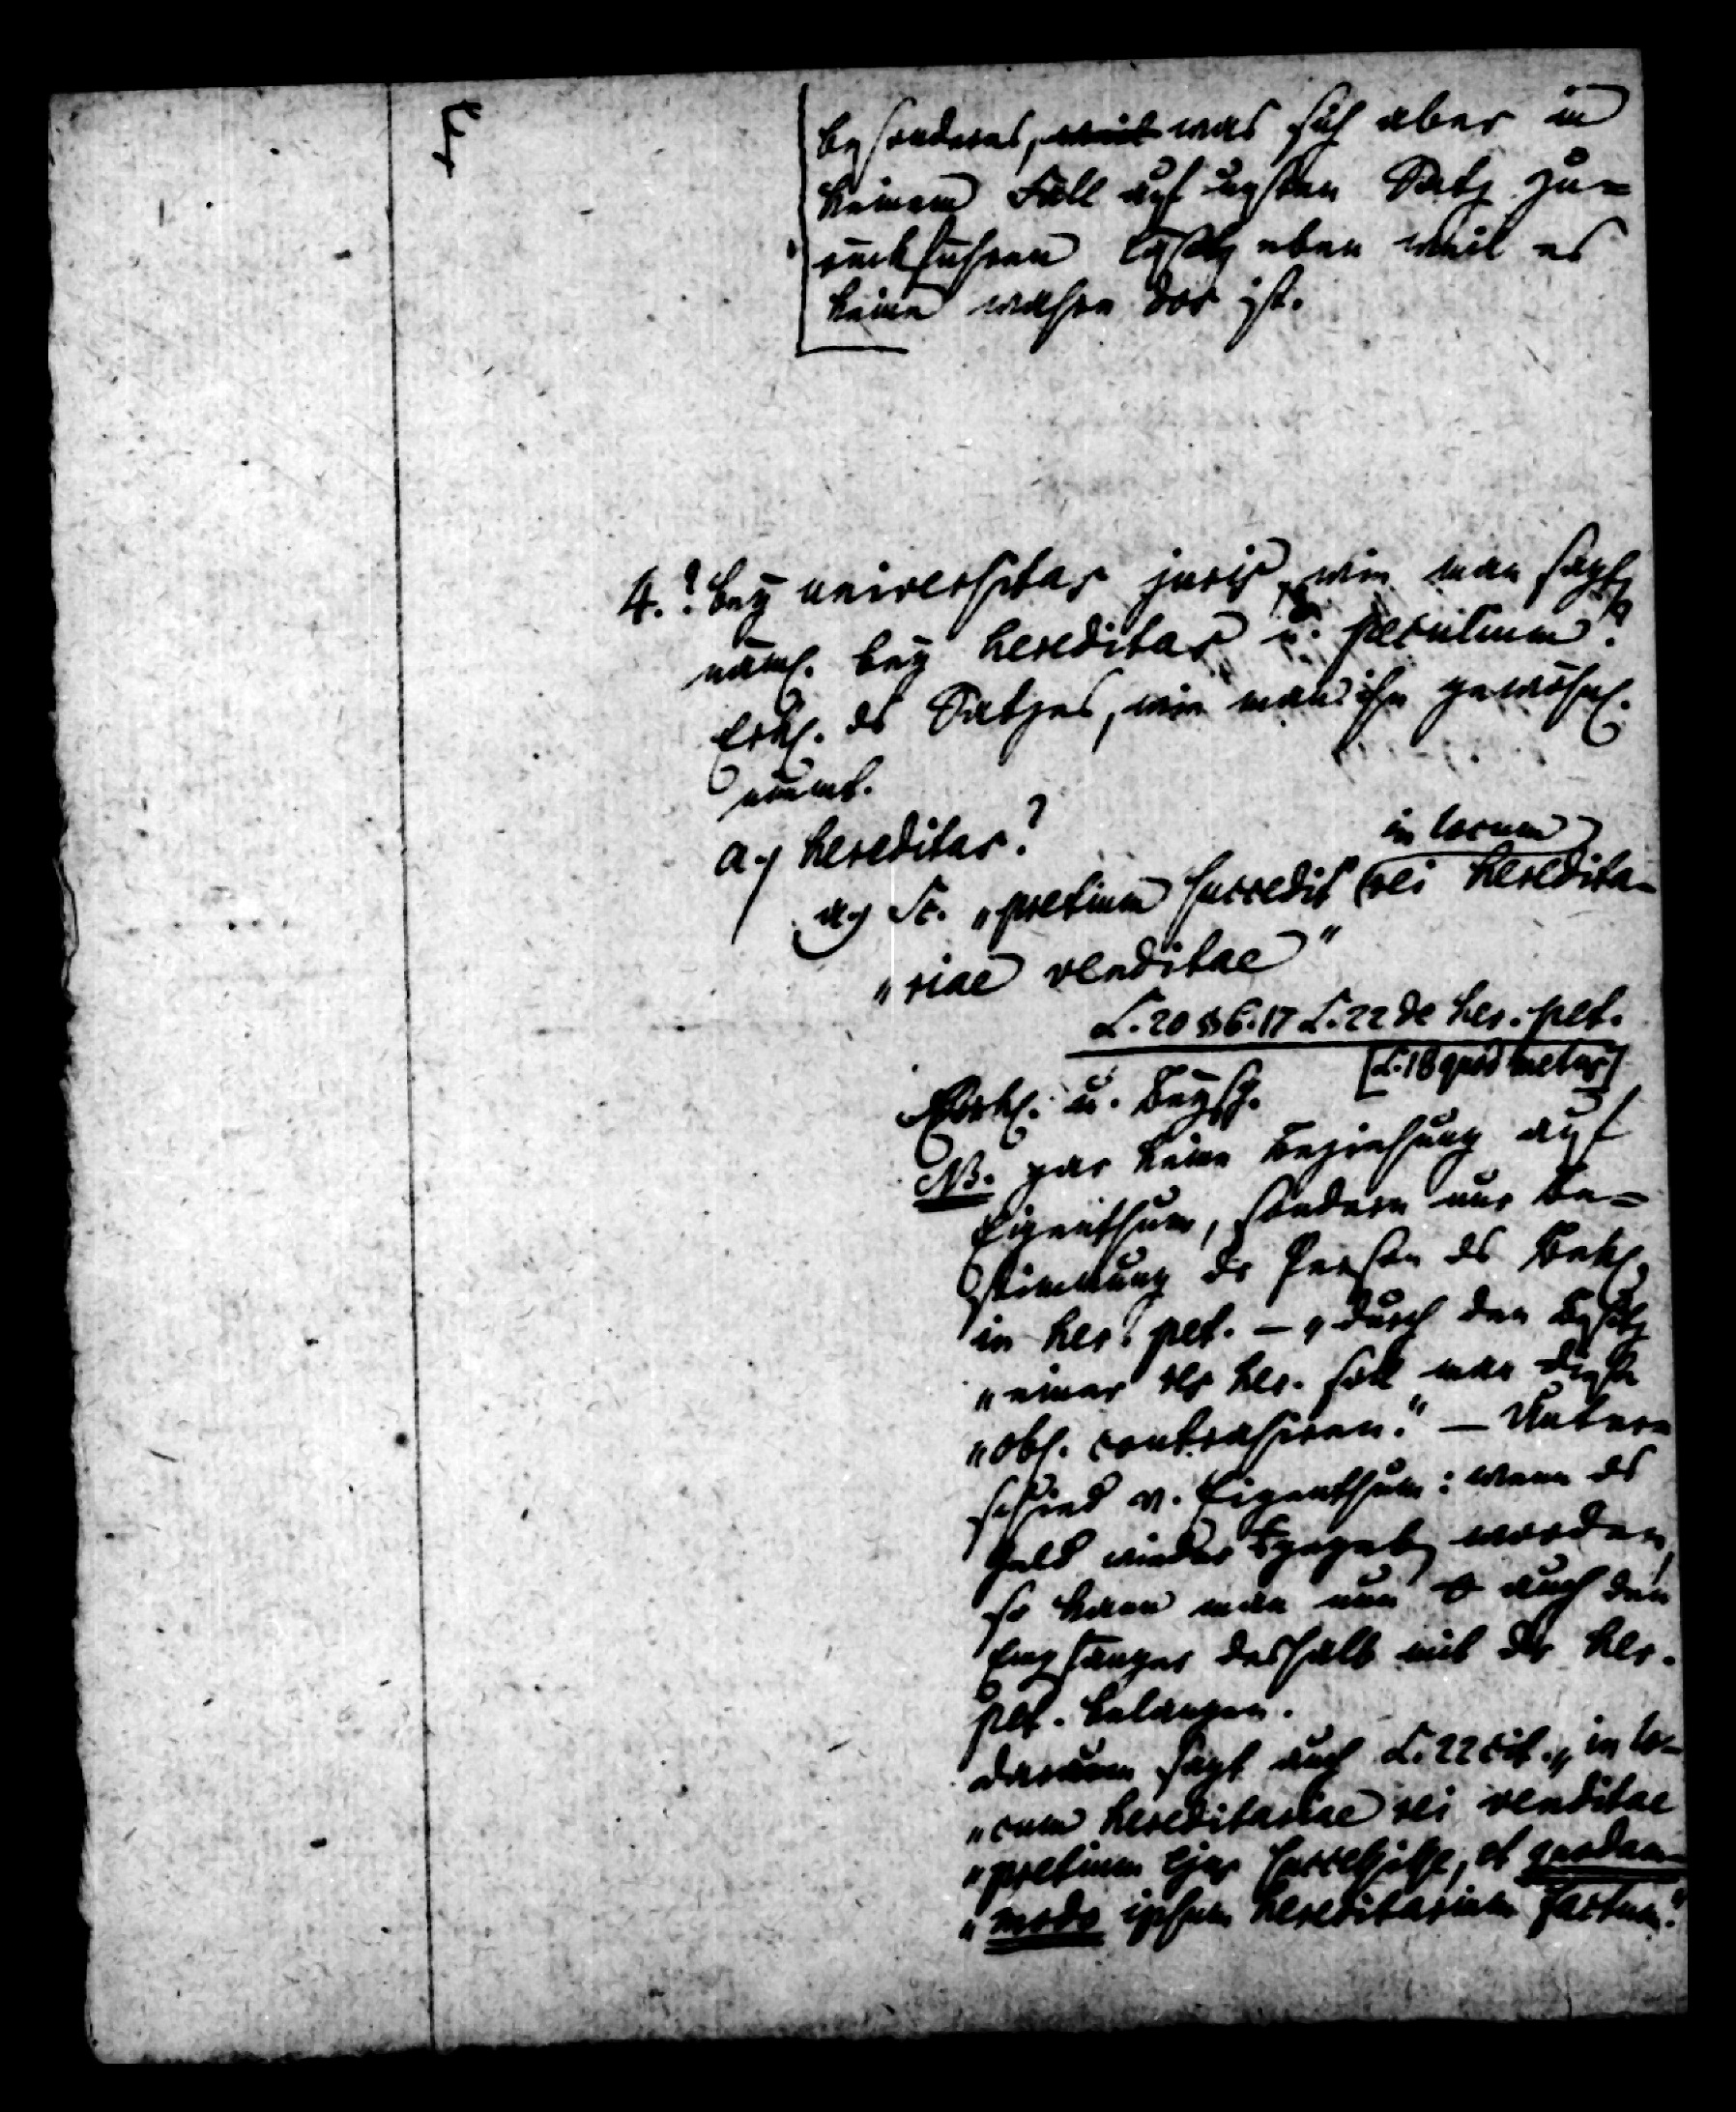 besonderes, weil was sich aber in
keinem Fall auf unsren Satz zu=
rückführen läßt, eben weil es
keine wahre dos ist.
4.? bey universitas juris, wie man sagt,
näml. bey hereditas u. peculium?
Erkl. des Satzes, wie man ihn gewöhnl.
nimmt.
a.) hereditas?
a) Sc. „pretium succedit in locum rei heredita-
„riae venditae"
L. 20 § 6. 17 L. 22 de her. pet.
[L. 18 quod metus]
Erkl. u. Beysp.
NB. gar keine Beziehung auf
Eigenthum, sondern nur Be=
stimmung der Person des Bekl.
in her. pet. – „durch den Besitz
„einer res her. soll man diese
„obl. contrahiren." – Unter=
schied v. Eigenthum: wenn das
Geld wieder weggegeb. worden,
so kann man nun auch den
Empfänger deshalb mit der her.
pet. belangen.
darum sagt auch L. 22 cit. „in lo-
„cum hereditariae rei venditae
„pretium ejus successisse, et quodam-
„modo ipsum hereditarium factum."